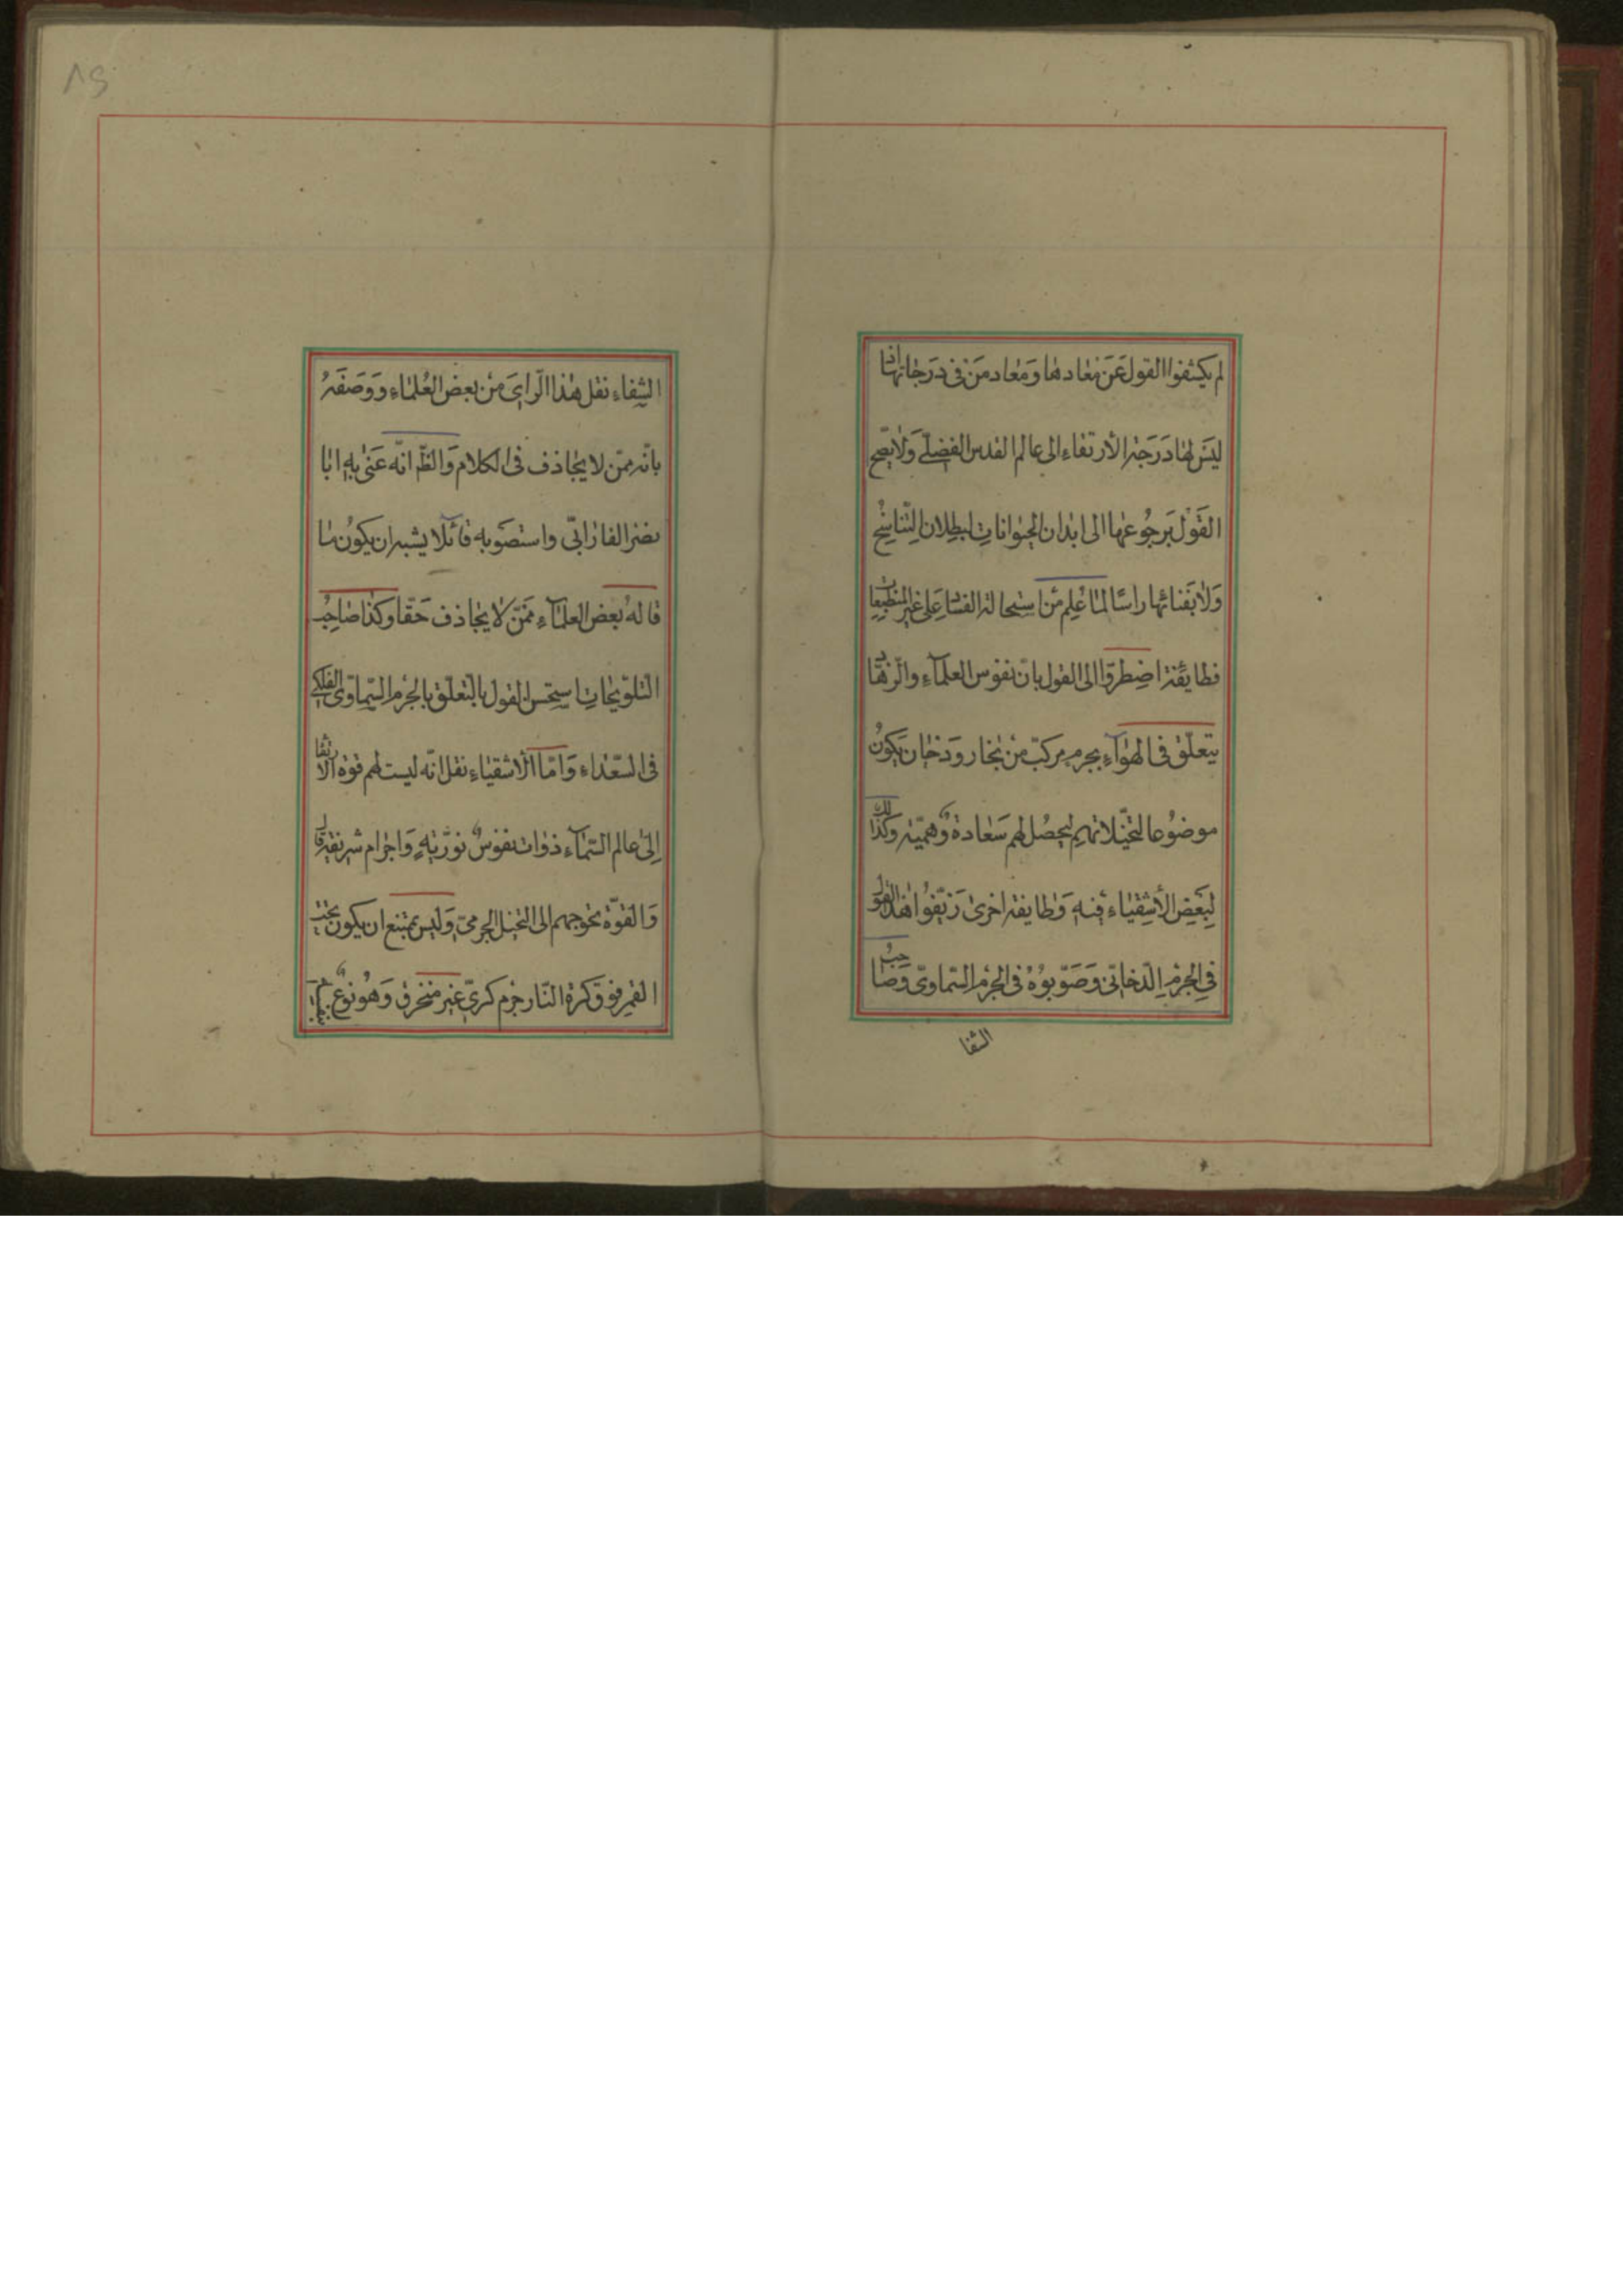 لم يكشفوا القول عَن معادها وَمعاد مَن فى دَرَجاتها اذا
ليسَ لها دَرَجة الأرتفاء الى عالم القدس الفضلّے وَلا يصّح
القَوْل بَرجُوعها الى ابدان الحيوانات لبطلان التّناسُخ
وَلا بفنائها راسًا لما عُلِم مْن استحالة الفساد على غير المنطبعات
فطايفة اضطرّوا الى القول بانّ نفوس العلمآء والزّهّاد
يتعلّق فى الهوآء بجرم مركبّ مْن بخار ودخان يَكونُ
موضوُعا لتخيّلاتهم ليحصُل لهم سَعادة وهميّة وكذلك
لبَعض الأشقياء فيه وَطايفة اخرى زَيّفوُا هذا القول
فى الجرم الدّخانّى وَصَوّبوُهُ فى الجرْم السّماوىّ وَصاحبُ
الشفا
٨٥
الشفاء نقل هذا الرّاىَ مْن بعض العُلماء وَوَصَفَهُ
بانّه ممّن لا يجاذف فى الكلام وَالظّ انّه عَنى به ابا
نصر الفارابّى واستصَوبه قائلًا يشبه ان يكوُن ما
قالهُ بعض العلمآء ممَّن لا يجاذف حَقّا وكذا صاحبُ
التلويحات استحسن القول بالتعلّق بالجرْم السّماوّى الفلكى
فى السّعداء وَامّا الأشقياء نقل انّه ليست لهم قوّة الارتقا
إلى عالم السّمآء ذوات نفوسٌ نوريّةٍ وَاجرام شريفة قال
وَالقوّة تحوجهم الى التخيل الجرمىّ وَليس بممتنع ان يكون تحت
القمر فوق كرة النّار جرْم كرىّ غير منخرق وَهوُ نوْع